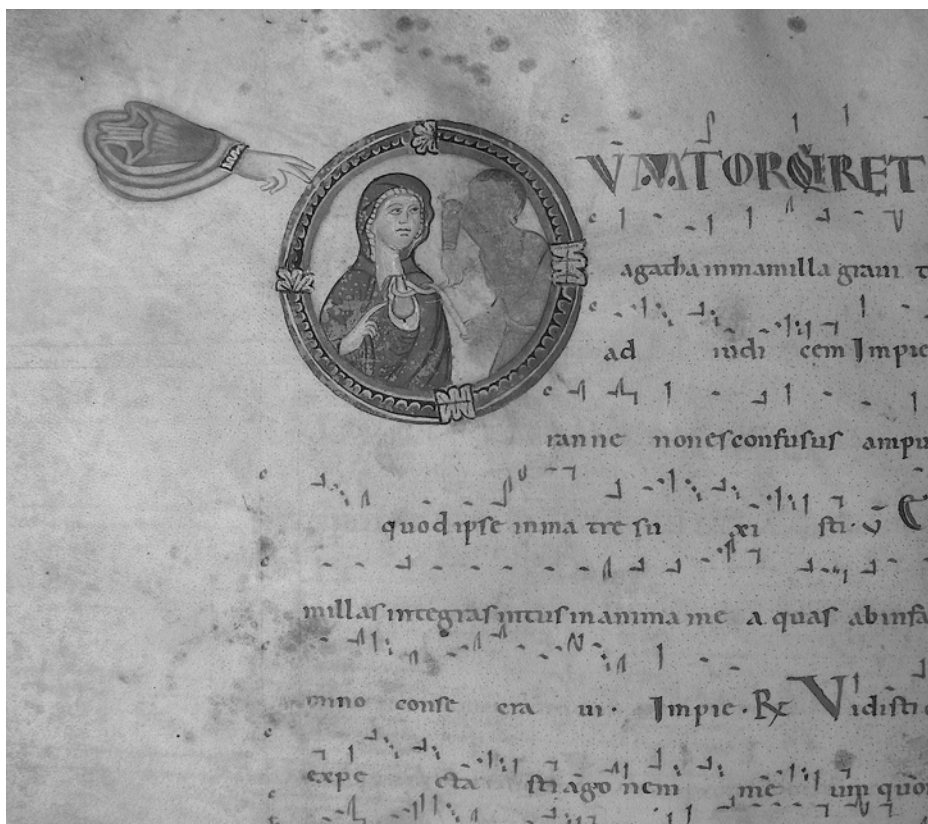 DŪM TORQUERET
agatha in mamilla graui t
ad iudi cem Impie
ranne non es confusus ampu
quod ipse in ma tre su xi sti · v̄ C
millas integras intus in anima me a quas ab infa
mino conse cra ui · Impie · R Vidisti
expe cta sti ago nem me um quō